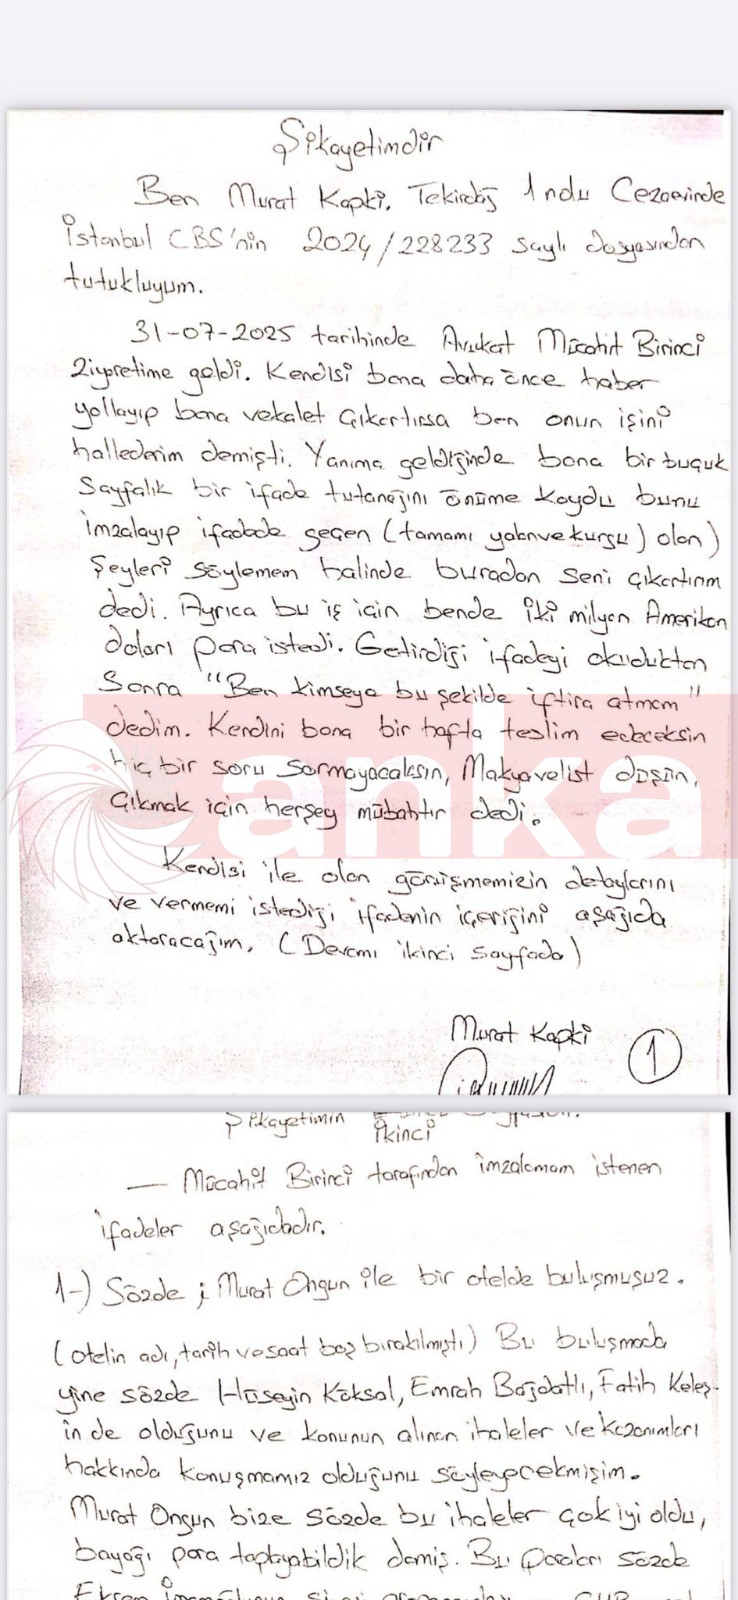 Şikayetimdir
Ben Murat Kapki. Tekirdağ 1 nolu Cezaevinde
İstanbul CBS'nin 2024/228233 sayılı dosyasından
tutukluyum.
31-07-2025 tarihinde Avukat Mücahit Birinci
Ziyaretime geldi. Kendisi bana daha önce haber
yollayıp bana vekalet çıkartırsa ben onun işini
hallederim demişti. Yanıma geldiğinde bana bir buçuk
Sayfalık bir ifade tutanağını önüme koydu bunu
imzalayıp ifadede geçen (tamamı yalan ve kurgu) olan)
Şeyleri söylemem halinde buradan seni çıkartırım
dedi. Ayrıca bu iş için bende iki milyon Amerikan
doları para istedi. Getirdiği ifadeyi okuduktan
Sonra "Ben kimseye bu şekilde iftira atmam"
dedim. Kendini bana bir hafta teslim edeceksin
hiç bir soru sormayacaksın, Makyavelist düşün,
Çıkmak için herşey mübahtır dedi.
anka
Kendisi ile olan görüşmemizin detaylarını
ve vermemi istediği ifadenin içeriğini aşağıda
aktaracağım. (Devamı ikinci sayfada)
Murat Kapki
1
Şikayetimin
İkinci
— Mücahit Birinci tarafından imzalamam istenen
ifadeler aşağıdadır.
1-) Sözde ; Murat Ongun ile bir otelde buluşmuşuz.
(otelin adı, tarih ve saat boş bırakılmıştı) Bu buluşmada
yine sözde Hüseyin Köksal, Emrah Bağdatlı, Fatih Keleş-
in de olduğunu ve konunun alınan ihaleler ve kazanımları
hakkında konuşmamız olduğunu söyleyecekmişim.
Murat Ongun bize sözde bu ihaleler çok iyi oldu,
bayağı para toplayabildik demiş. Bu paraları sözde